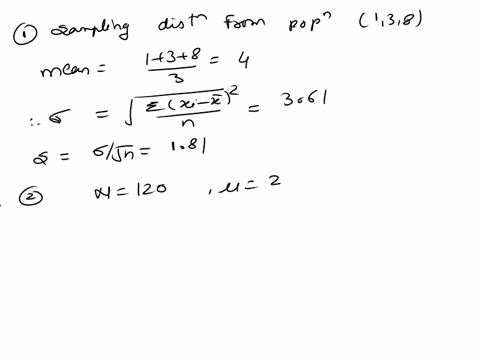 ① Sampling distⁿ from popⁿ (1,3,8)
mean = \frac{1+3+8}{3} = 4
∴ σ = \sqrt{\frac{Σ(xᵢ-x̄)^2}{n}} = 3.61
s = σ/√n = 1.81
② N = 120 , μ = 2